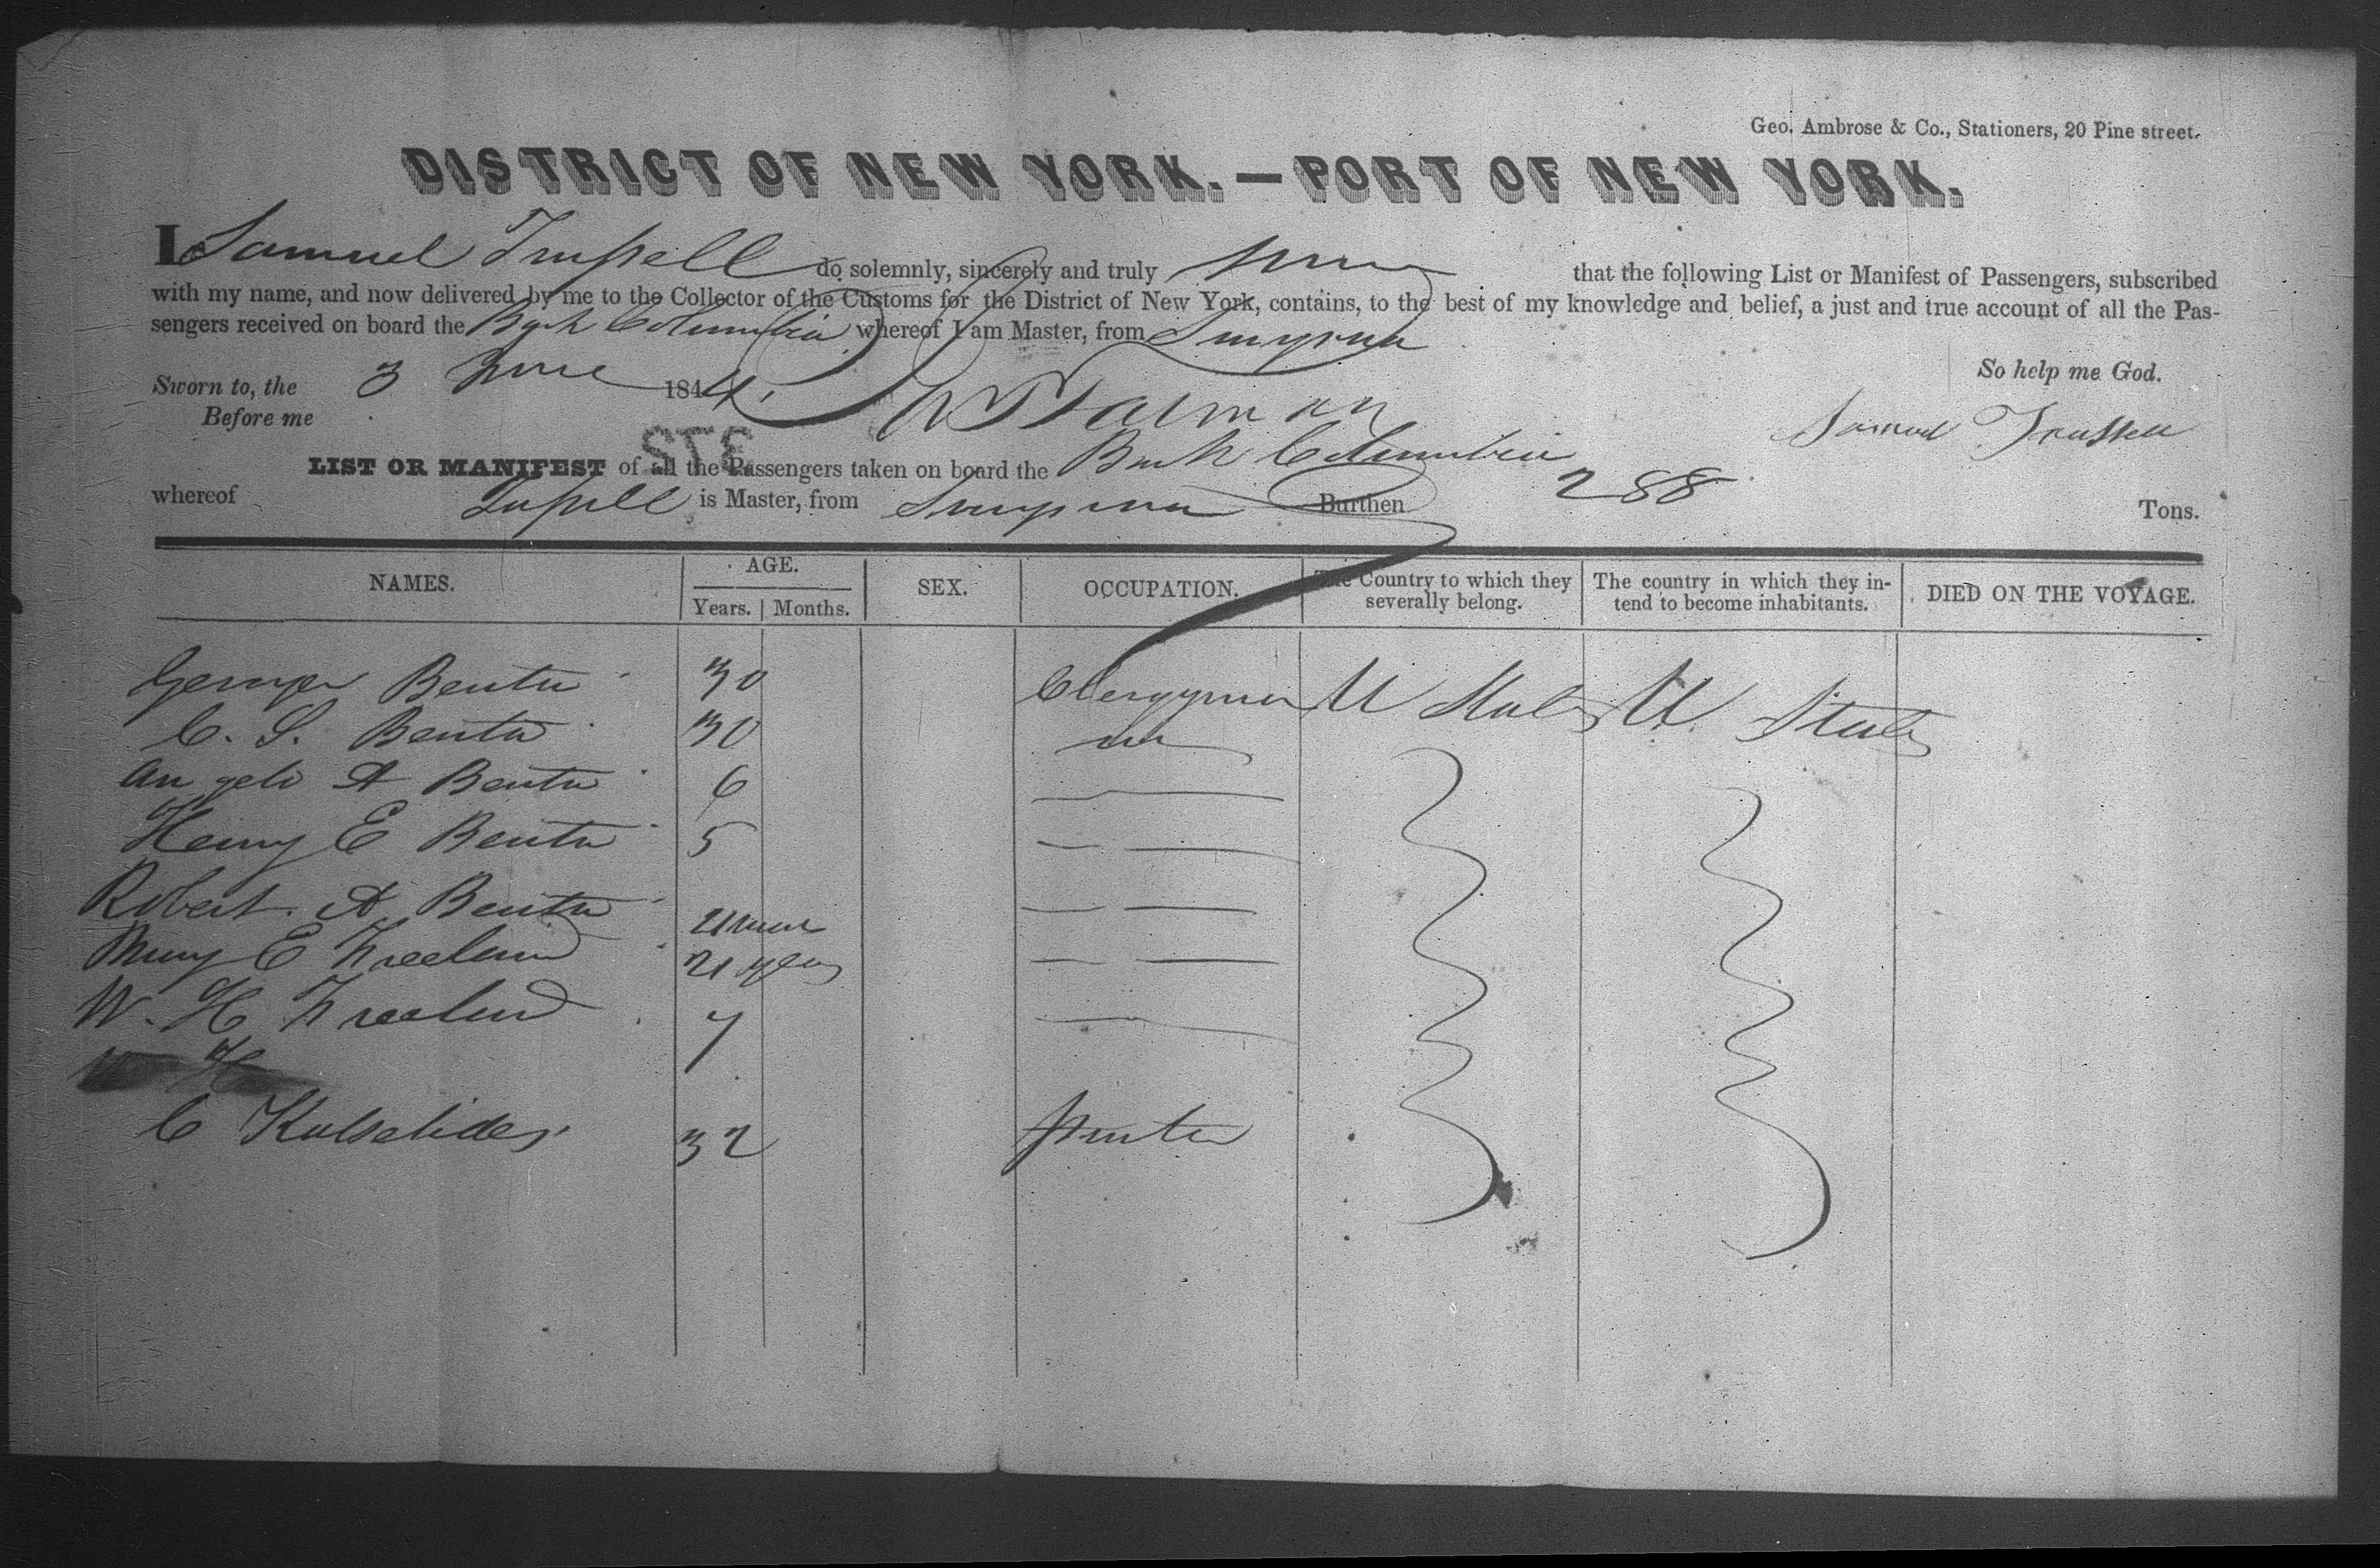 Geo. Ambrose & Co., Stationers, 20 Pine street.
DISTRICT OF NEW YORK.—PORT OF NEW YORK.
I Samuel Trussell do solemnly, sincerely and truly swear that the following List or Manifest of Passengers, subscribed
with my name, and now delivered by me to the Collector of the Customs for the District of New York, contains, to the best of my knowledge and belief, a just and true account of all the Pas-
sengers received on board the Bark Columbia whereof I am Master, from Smyrna
So help me God.
Sworn to, the 3 June 1844.
Before me
Samuel Trussell
LIST OR MANIFEST of all the Passengers taken on board the Bark Columbia
whereof is Master, from Smyrna Burthen 288 Tons.
NAMES. AGE. SEX. OCCUPATION. The Country to which they severally belong. The country in which they in-tend to become inhabitants. DIED ON THE VOYAGE.
Years. Months.
George Benton 30 Clergyman U States U. States
C. S. Benton 30
A Benton 6
Henry E Benton 5
Robert A Benton
Mary E Freeland 21 years
W. H Freeland 7
W H
C 32 printer